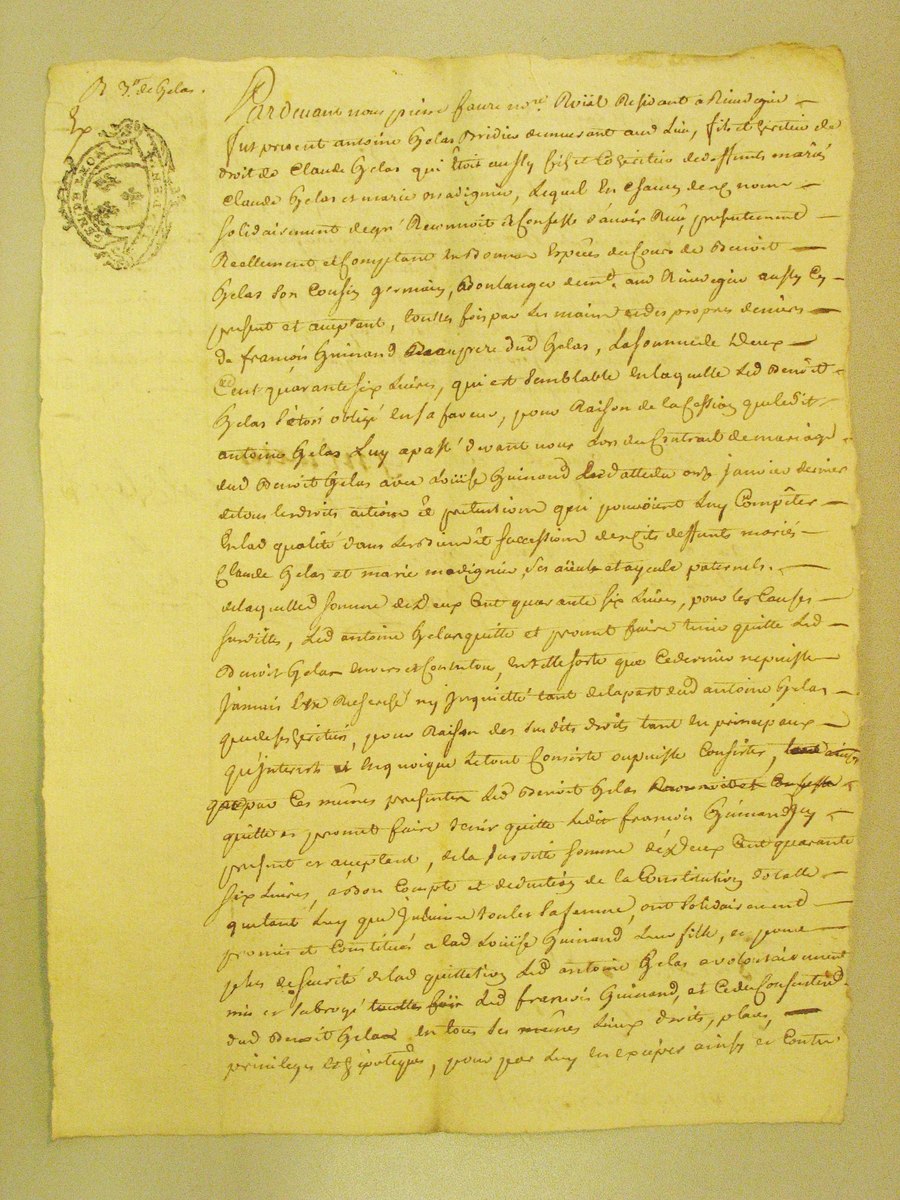 de Gelas.
GEN DE LYON
Pardevant nous pierre faure no.re Roïal Residant a Rivedegier
fut present antoine Gelas demeurant aud Lieu, fils et heritier de
droit de Claude Gelas qui Etoit aussy fils et Coheritier de deffunts mariés
Claude Gelas et marie madignier, Lequel En Chacun de ces noms
solidairement de gré Reconnoit et Confesse d'avoir Reçu presentement
Reellement et Comptant En Bonnes Especes du Cours de Benoit
Gelas son Cousin germain, Boulanger dem.t aud Rivedegier aussy Cy
present et acceptant, touttes fois par Les mains et des propres deniers
de françois Guinand Beaupere dud Gelas, La somme de Deux
Cent quarante six Livres, qui est semblable En laquelle Led Benoit
Gelas s'etoit obligé En sa faveur, pour Raison de la Cession que ledit
antoine Gelas Luy a passé devant nous Lors du Contrait de mariage
dud Benoit Gelas avec Loüise Guinand datte du onze janvier dernier
de tous les droits actions et pretentions qui pouvoient Luy Compêter
En lad qualité dans Les Biens et successions desdits deffunts mariés
Claude Gelas et marie madignier, ses aïeuls et ayeule paternels.
de laquelle somme de Deux Cent quarante six Livres, pour les Causes
susdittes, Led antoine Gelas quitte et promet faire tenir quitte Led
Benoit Gelas Envers et Contre tous, En telle sorte que Ce dernier ne puisse
jamais Etre Recherché ny jnquietté tant de la part dud antoine Gelas
que de ses heritiers, pour Raison des susdits droits tant En principaux
qu'jnterets et En quoique Le tout Consiste ou puisse Consister,
que par Ces mêmes presentes Led Benoit Gelas Reconnoit et Confesse
quitte et promet faire tenir quitte Ledit françois Guinand Cy
present et acceptant, de la susditte somme de Deux Cent quarante
six Livres, a Bon Compte et deduction de la Constitution dotalle
que tant Luy que sa femme, ont solidairement
promis et Constitués a lad Loüise Guinand Leur fille, et pour
plus de sureté de lad quittation Led antoine Gelas a volontairement
mis et subrogé Led françois Guinand, et Ce du Consentement
dud Benoit Gelas En tous ses mêmes Lieux droits, places,
privileges et hipoteques, pour par Luy En Exciper ainsy et Contre